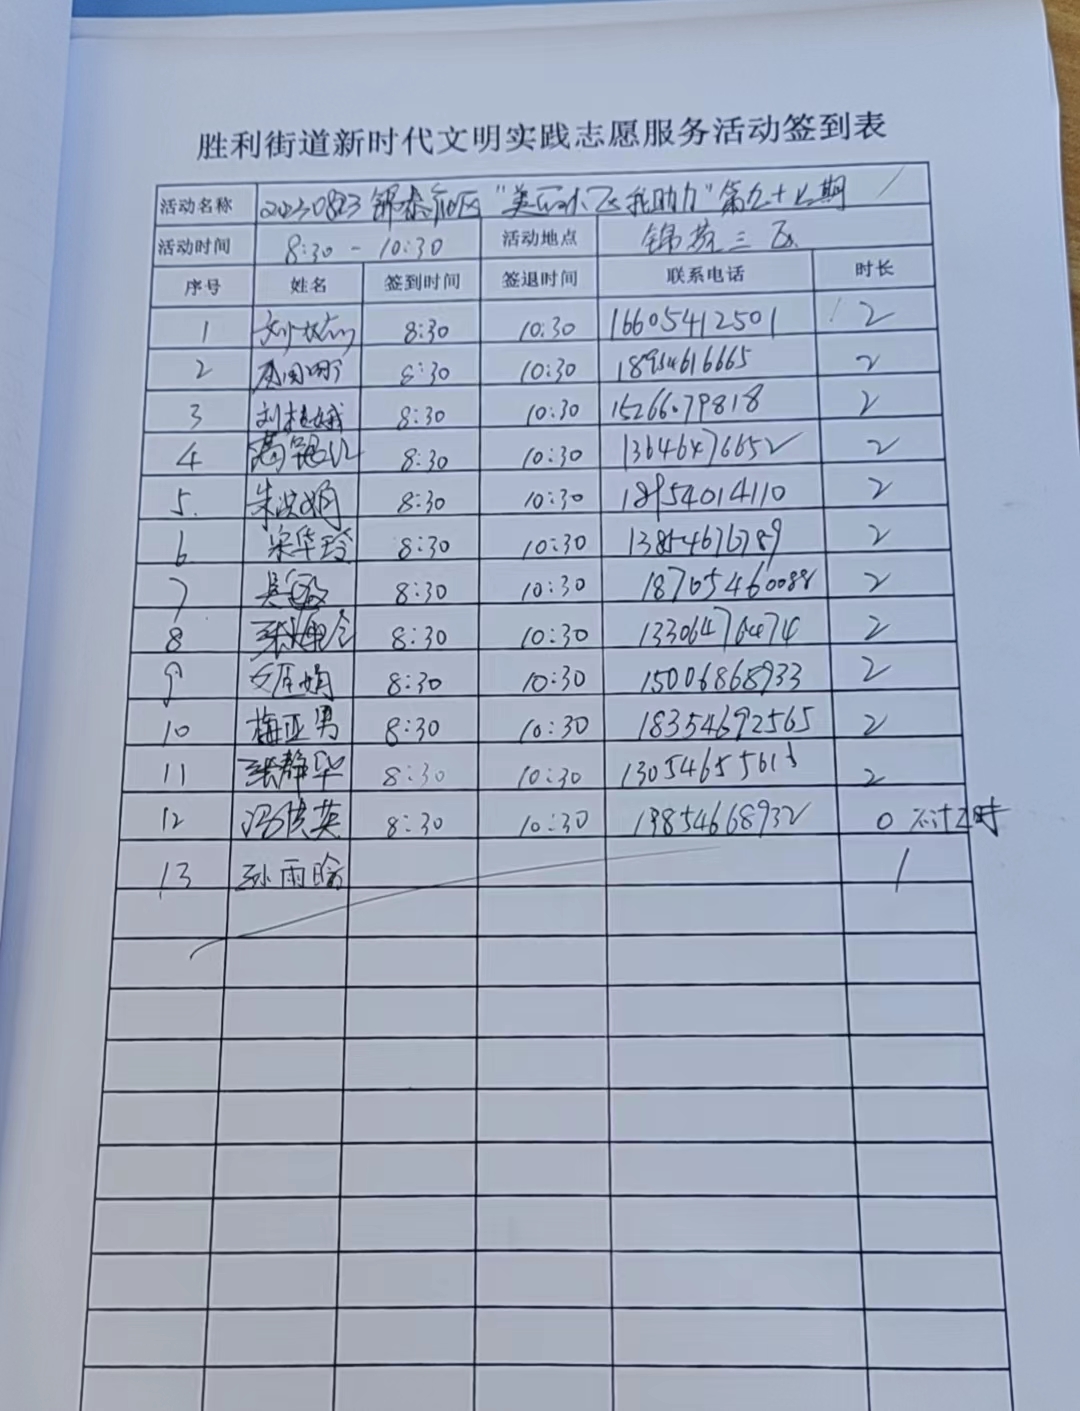 胜利街道新时代文明实践志愿服务活动签到表
活动名称 20230823 锦苑社区 "美丽小区我助力" 第九十七期
活动时间 8:30 - 10:30 活动地点 锦苑三区
序号 姓名 签到时间 签退时间 联系电话 时长
1 8:30 10:30 16605412501 2
2 8:30 10:30 18954616665 2
3 刘桂娥 8:30 10:30 15266079818 2
4 8:30 10:30 13646476652 2
5. 朱洪娟 8:30 10:30 18954014110 2
6 宋华玲 8:30 10:30 13854676789 2
7 吴敏 8:30 10:30 18705460088 2
8 8:30 10:30 13306476474 2
9 8:30 10:30 15006868933 2
10 梅亚男 8:30 10:30 18354692565 2
11 张静华 8:30 10:30 2
12 英 8:30 10:30 19854668932 0 不计工时
13 孙雨晗 1